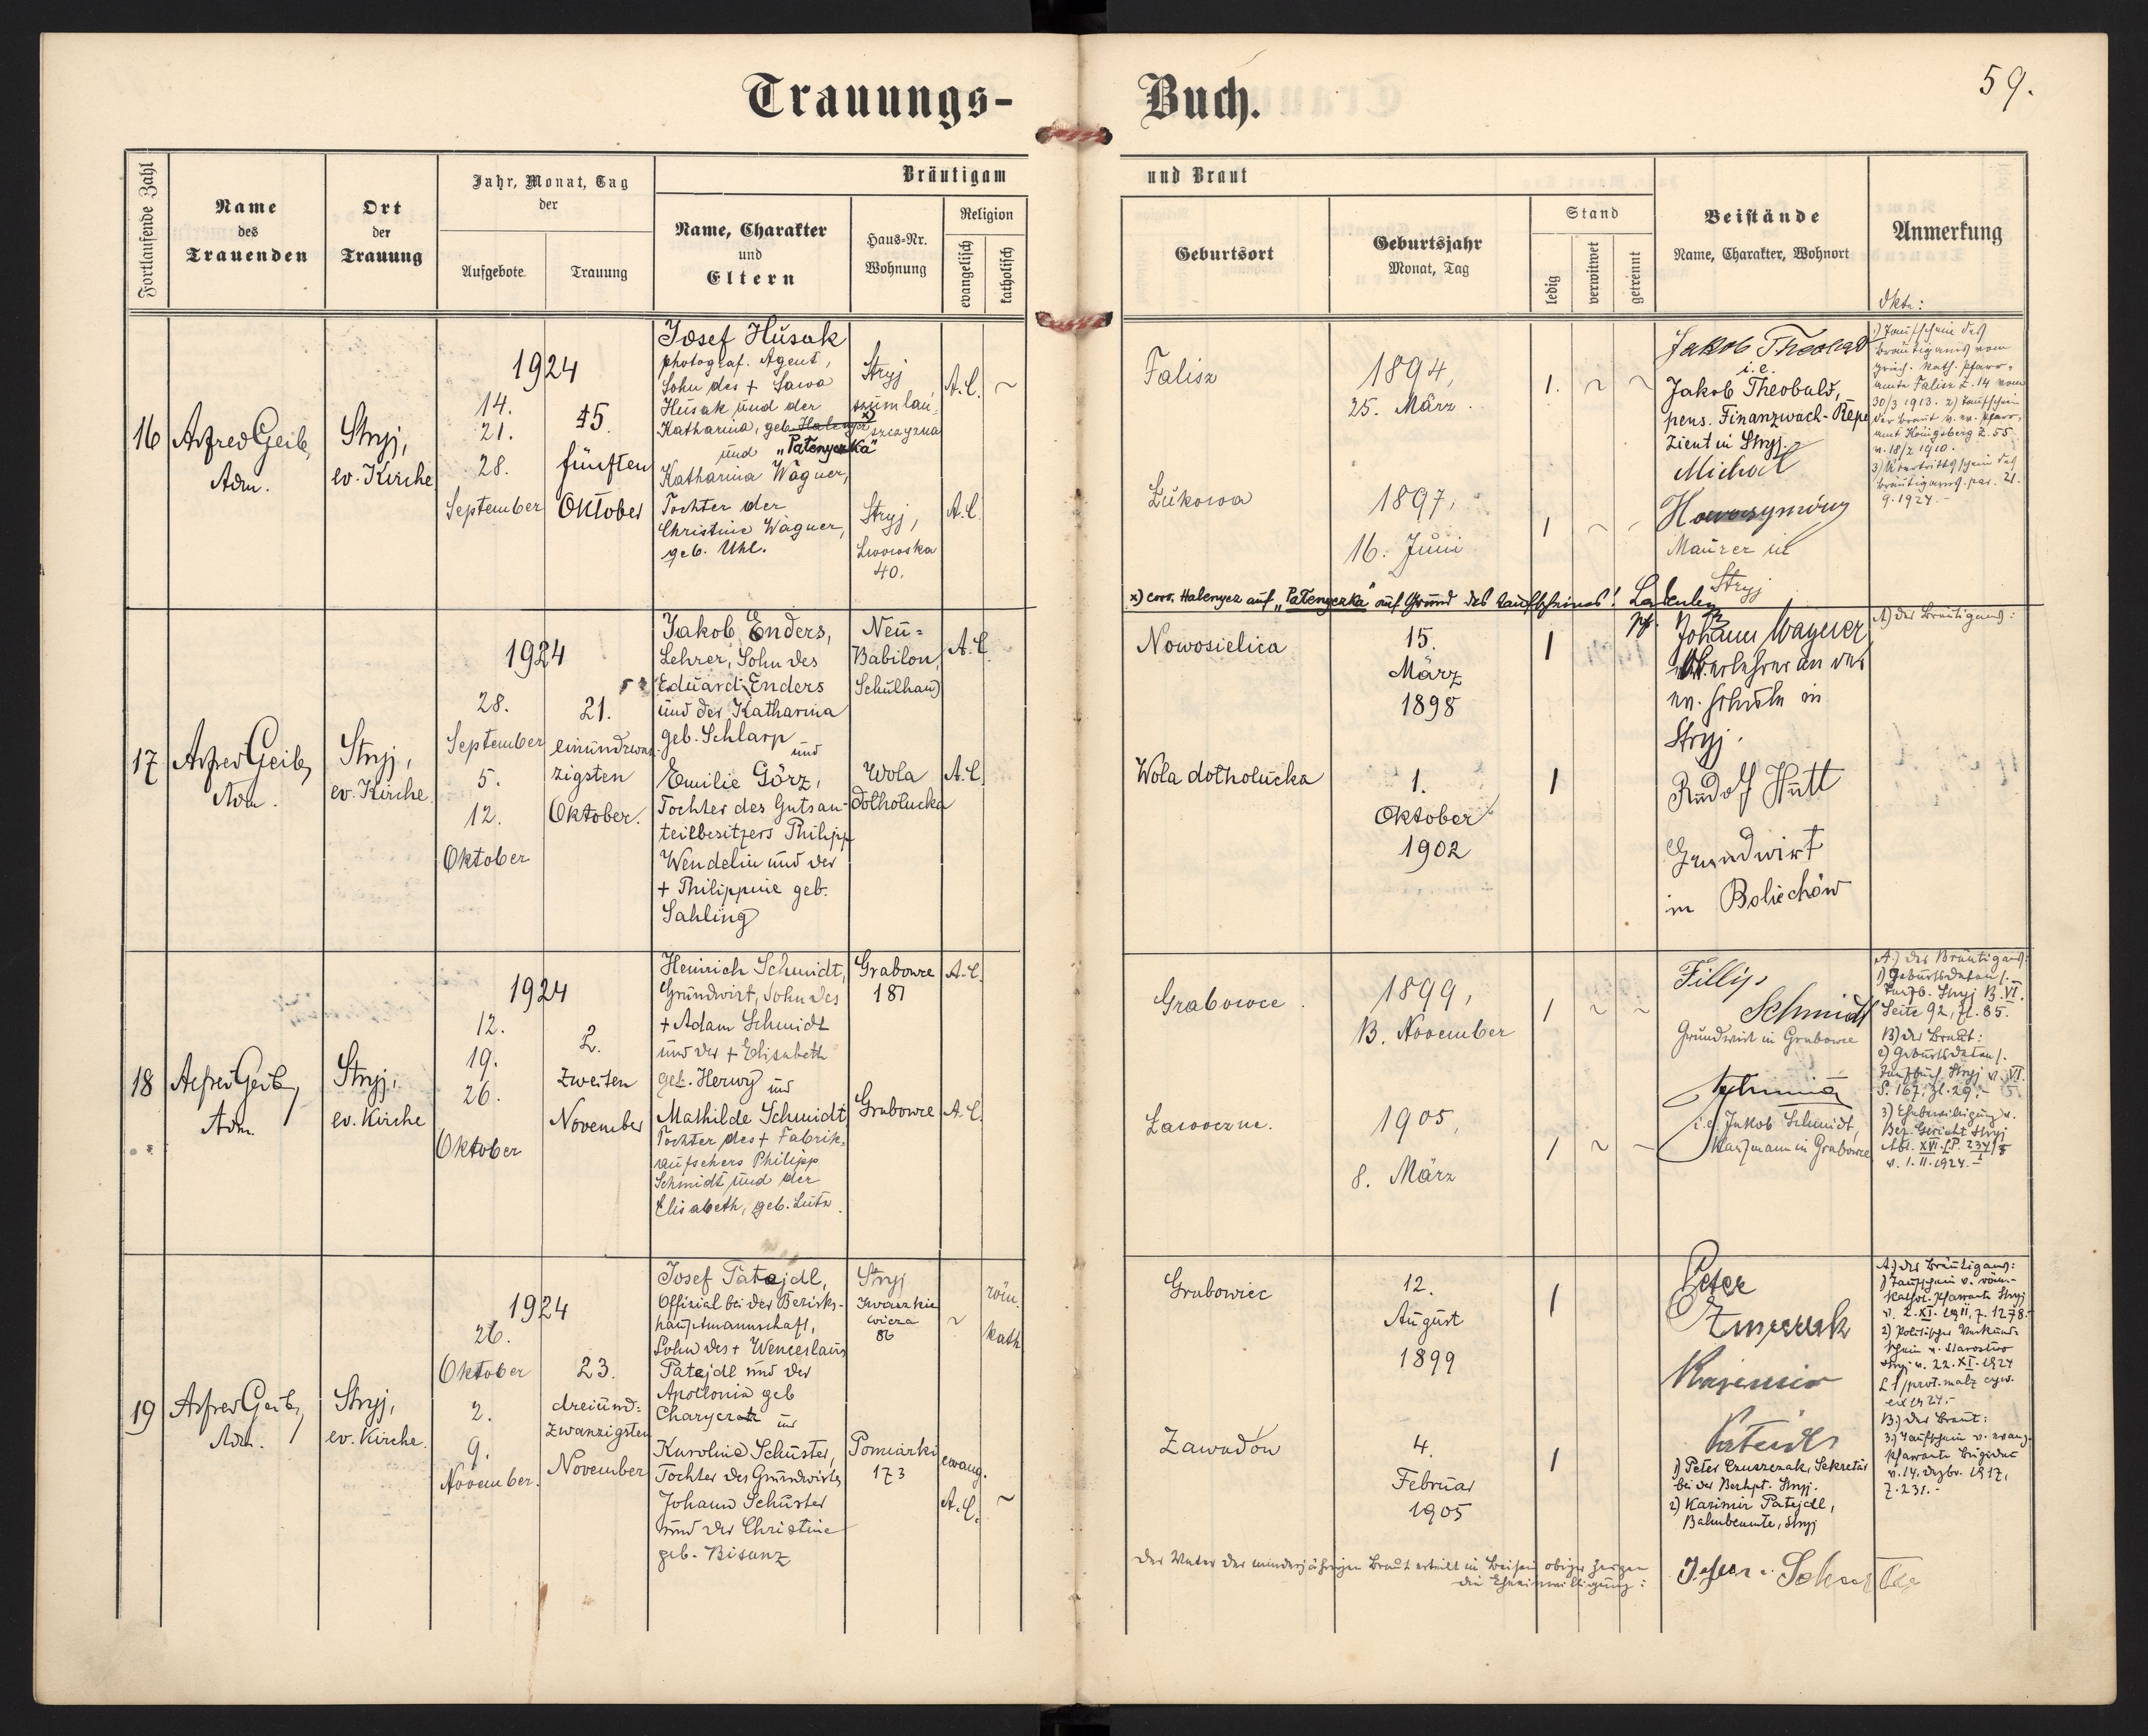 Trauungs-Buch.
59.
Fortlaufende Zahl
Name
des
Trauenden
Ort
der
Trauung
Jahr, Monat, Tag
der
Aufgebote
Trauung
Bräutigam
und Braut
Name, Charakter
und
Eltern
Haus-Nr.
Wohnung
Religion
evangelisch
katholisch
Geburtsort
Geburtsjahr
Monat, Tag
Stand
ledig
verwitwet
getrennt
Beistände
Name, Charakter, Wohnort
Anmerkung
16
Alfred Geib,
Adm.
Stryj,
ev. Kirche
1924
14.
21.
28.
September
5.
fünften
Oktober
Josef Husak
photograf. Agent,
Sohn des + Sawa
Husak und der
Katharina, geb.
"Patenyczka"
und
Katharina Wagner,
Tochter der
Christine Wagner,
geb. Uhl.
Stryj
A.C.
~
Stryj,
Lwowska
40.
A.C.
Falisz
1894,
25. März
1. ~ ~
Łukowa
1897,
16. Juni
1 ~
Jakob Theobald
i.e.
Jakob Theobald,
pens. Finanzwach-
zient in Stryj.
Michal
Maurer in
Stryj
1) Taufschein des
Bräutigams vom
griech. kath. Pfarr-
amte Falisz Z. 14 vom
30/3 1913. 2) Taufschein
der Braut v. ev. Pfarr-
amt Königsberg Z. 55
v. 18/2 1910.
3) Übertrittsschein des
Bräutigams 21.
9. 1924.-
x) corr. Halenycz auf "Patenyczka" auf Grund des Taufscheines!
17
Alfred Geib,
Adm.
Stryj,
ev. Kirche
1924
28.
September
5.
12.
Oktober
21.
einundzwan-
zigsten
Oktober.
Jakob Enders,
Lehrer, Sohn des
Eduard Enders
und der Katharina
geb. Schlarp
und
Emilie Görz,
Tochter des Gutsan-
teilbesitzers Philipp
Wendelin und der
+ Philippine geb.
Sahling
Neu-
Babilon,
Schulhaus
A.C.
Wola
dołhołucka
A.C.
Nowosielica
15.
März
1898
1
Wola dołhołucka
1.
Oktober
1902
1
Johann Wagner
Oberlehrer an der
ev. Schule in
Stryj.
Rudolf Hütt
Grundwirt
in Bolechów
A) des Bräutigams:
18
Alfred Geib,
Adm.
Stryj,
ev. Kirche
1924
12.
19.
26.
Oktober
2.
zweiten
November
Heinrich Schmidt,
Grundwirt, Sohn des
+ Adam Schmidt
und der + Elisabeth
geb. Herwy und
Mathilde Schmidt,
Tochter des + Fabrik-
aufsehers Philipp
Schmidt und der
Elisabeth, geb. Lutz.
Grabowce
181
A.C.
Grabowce
A.C.
Grabowce
1899,
13. November
1 ~ ~
Ławoczne.
1905,
8. März
1 ~ ~
Fillip
Schmidt
Grundwirt in Grabowce
i.e. Jakob Schmidt,
Kaufmann in Grabowce
A.) des Bräutigams:
1) Geburtsdaten/.
Taufb. Stryj B. VI.
Seite 92, Zl. 85.
B) der Braut:
2) Geburtsdaten/.
Taufbuch Stryj v. VI.
S. 167, Zl. 29.-
3) Ehebewilligung v.
Bez. Gericht Stryj
v. 1. 11. 1924.-
19
Alfred Geib,
Adm.
Stryj,
ev. Kirche.
1924
26.
Oktober
2.
9.
November.
23.
dreiund-
zwanzigsten
November
Josef Patejdl,
Offizial bei der Bezirks-
hauptmannschaft,
Sohn des + Wenceslaus
Patejdl und der
Apollonia geb
und
Karoline Schuster,
Tochter des Grundwirtes
Johann Schuster
und der Christine
geb. Bisanz
Stryj
Iwaszkie
wicza
86
~
röm.
kath
Pomiarki
173
evang.
A.C.
~
Grabowiec
12.
August
1899
1
Zawadów
4.
Februar
1905
1
Peter
Kasimir
Patejdl
1) Peter Czuszczak, Sekretär
bei der Bezhpt. Stryj.
2) Kazimir Patejdl,
Bahnbeamte, Stryj
A) des Bräutigams:
1) Taufschein v. röm.-
kathol. Pfarramte Stryj
v. 2. XI. 1911, Z. 1278.-
Stryj v. 22. XI. 1924
B.) der Braut:
3) Taufschein v. evang.
Pfarramte Brigidau
v. 14. Dezbr. 1917,
Z. 231.-
Der Vater der minderjährigen Braut erteilt in Beisein obiger Zeugen
die Eheeinwilligung: